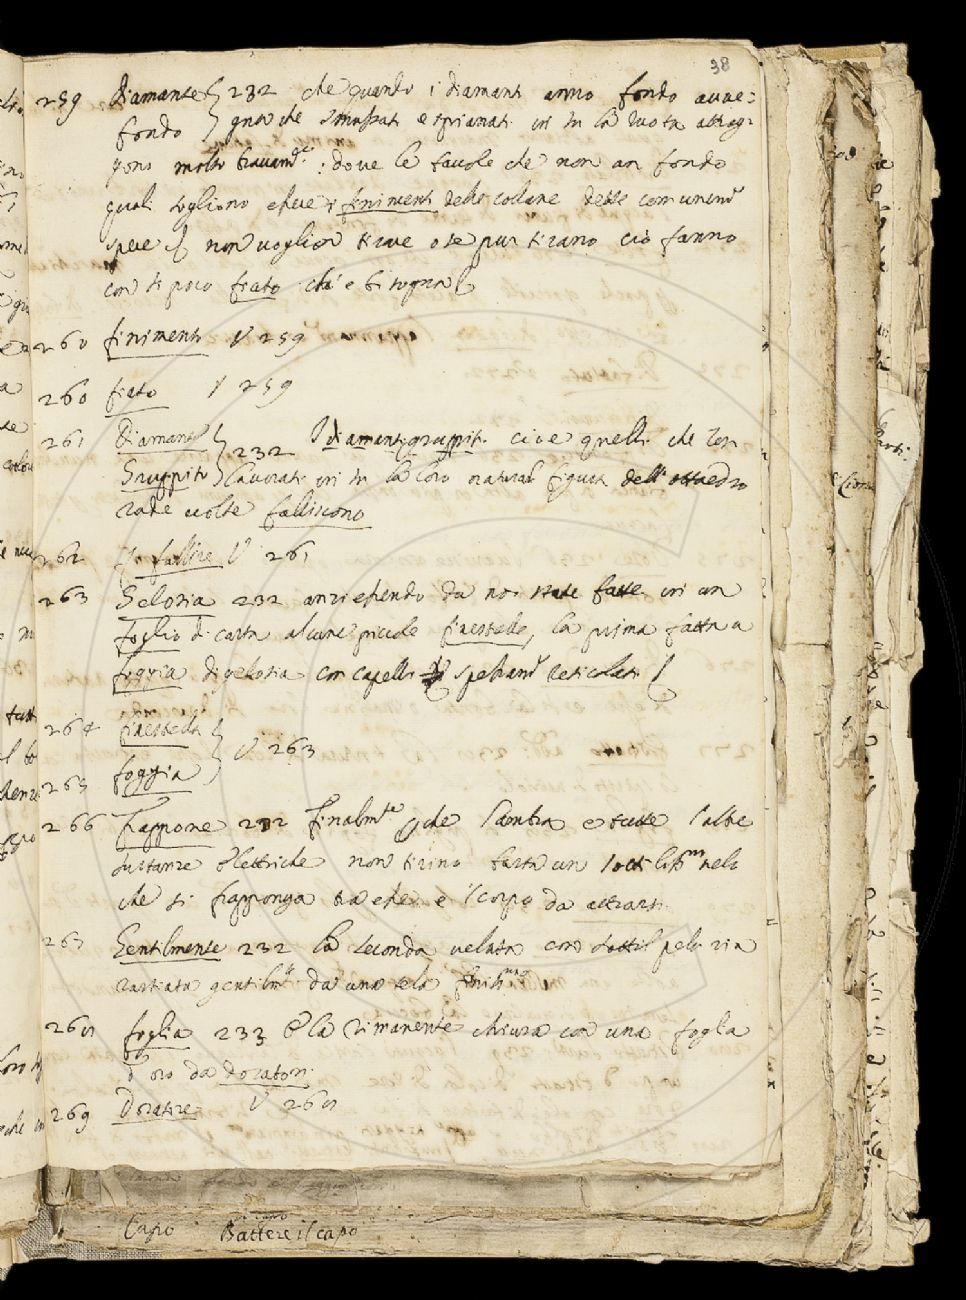 38
259 Diamante } 232 che quando i diamanti anno fondo avve=
fondo } gna che smussati e spianati sin su la ruota attrag=
gono molto bravam.te: dove le tavole che non an fondo
quali sogliono essere i finimenti delle collane dette comunem.e
spere non voglion tirare o se pur tirano ciò fanno
con si poco fiato che è bisogna
260 finimenti V 259
260 fiato V 259
261 Diamanti } 232 I diamanti gruppiti cioè quelli che son
Gruppiti } lavorati in su la loro natural figura dell'ottaedro
rade volte falliscono
262 fallire V 261
263 Gelosia 232 anzi essendo da noi state fatte in un
foglio di carta alcune piccole finestrelle, la prima fatta a
foggia di gelosia con capelli spessam.e reticolati
264 finestrella } V 263
265 foggia }
266 frappone 232 finalm.te che l'ambra e tutte l'altre
sustanze elettriche non tirino basta un sottilis.mo velo
che si frapponga tra esse e il corpo da attrarsi.
267 Gentilmente 232 la seconda velata con sottil peluria
rastiata gentilm.te da una tela finis.ma
268 foglia 233 E la rimanente chiusa con una foglia
d'oro da doratori.
269 Doratore V 268
Capo Battere il capo